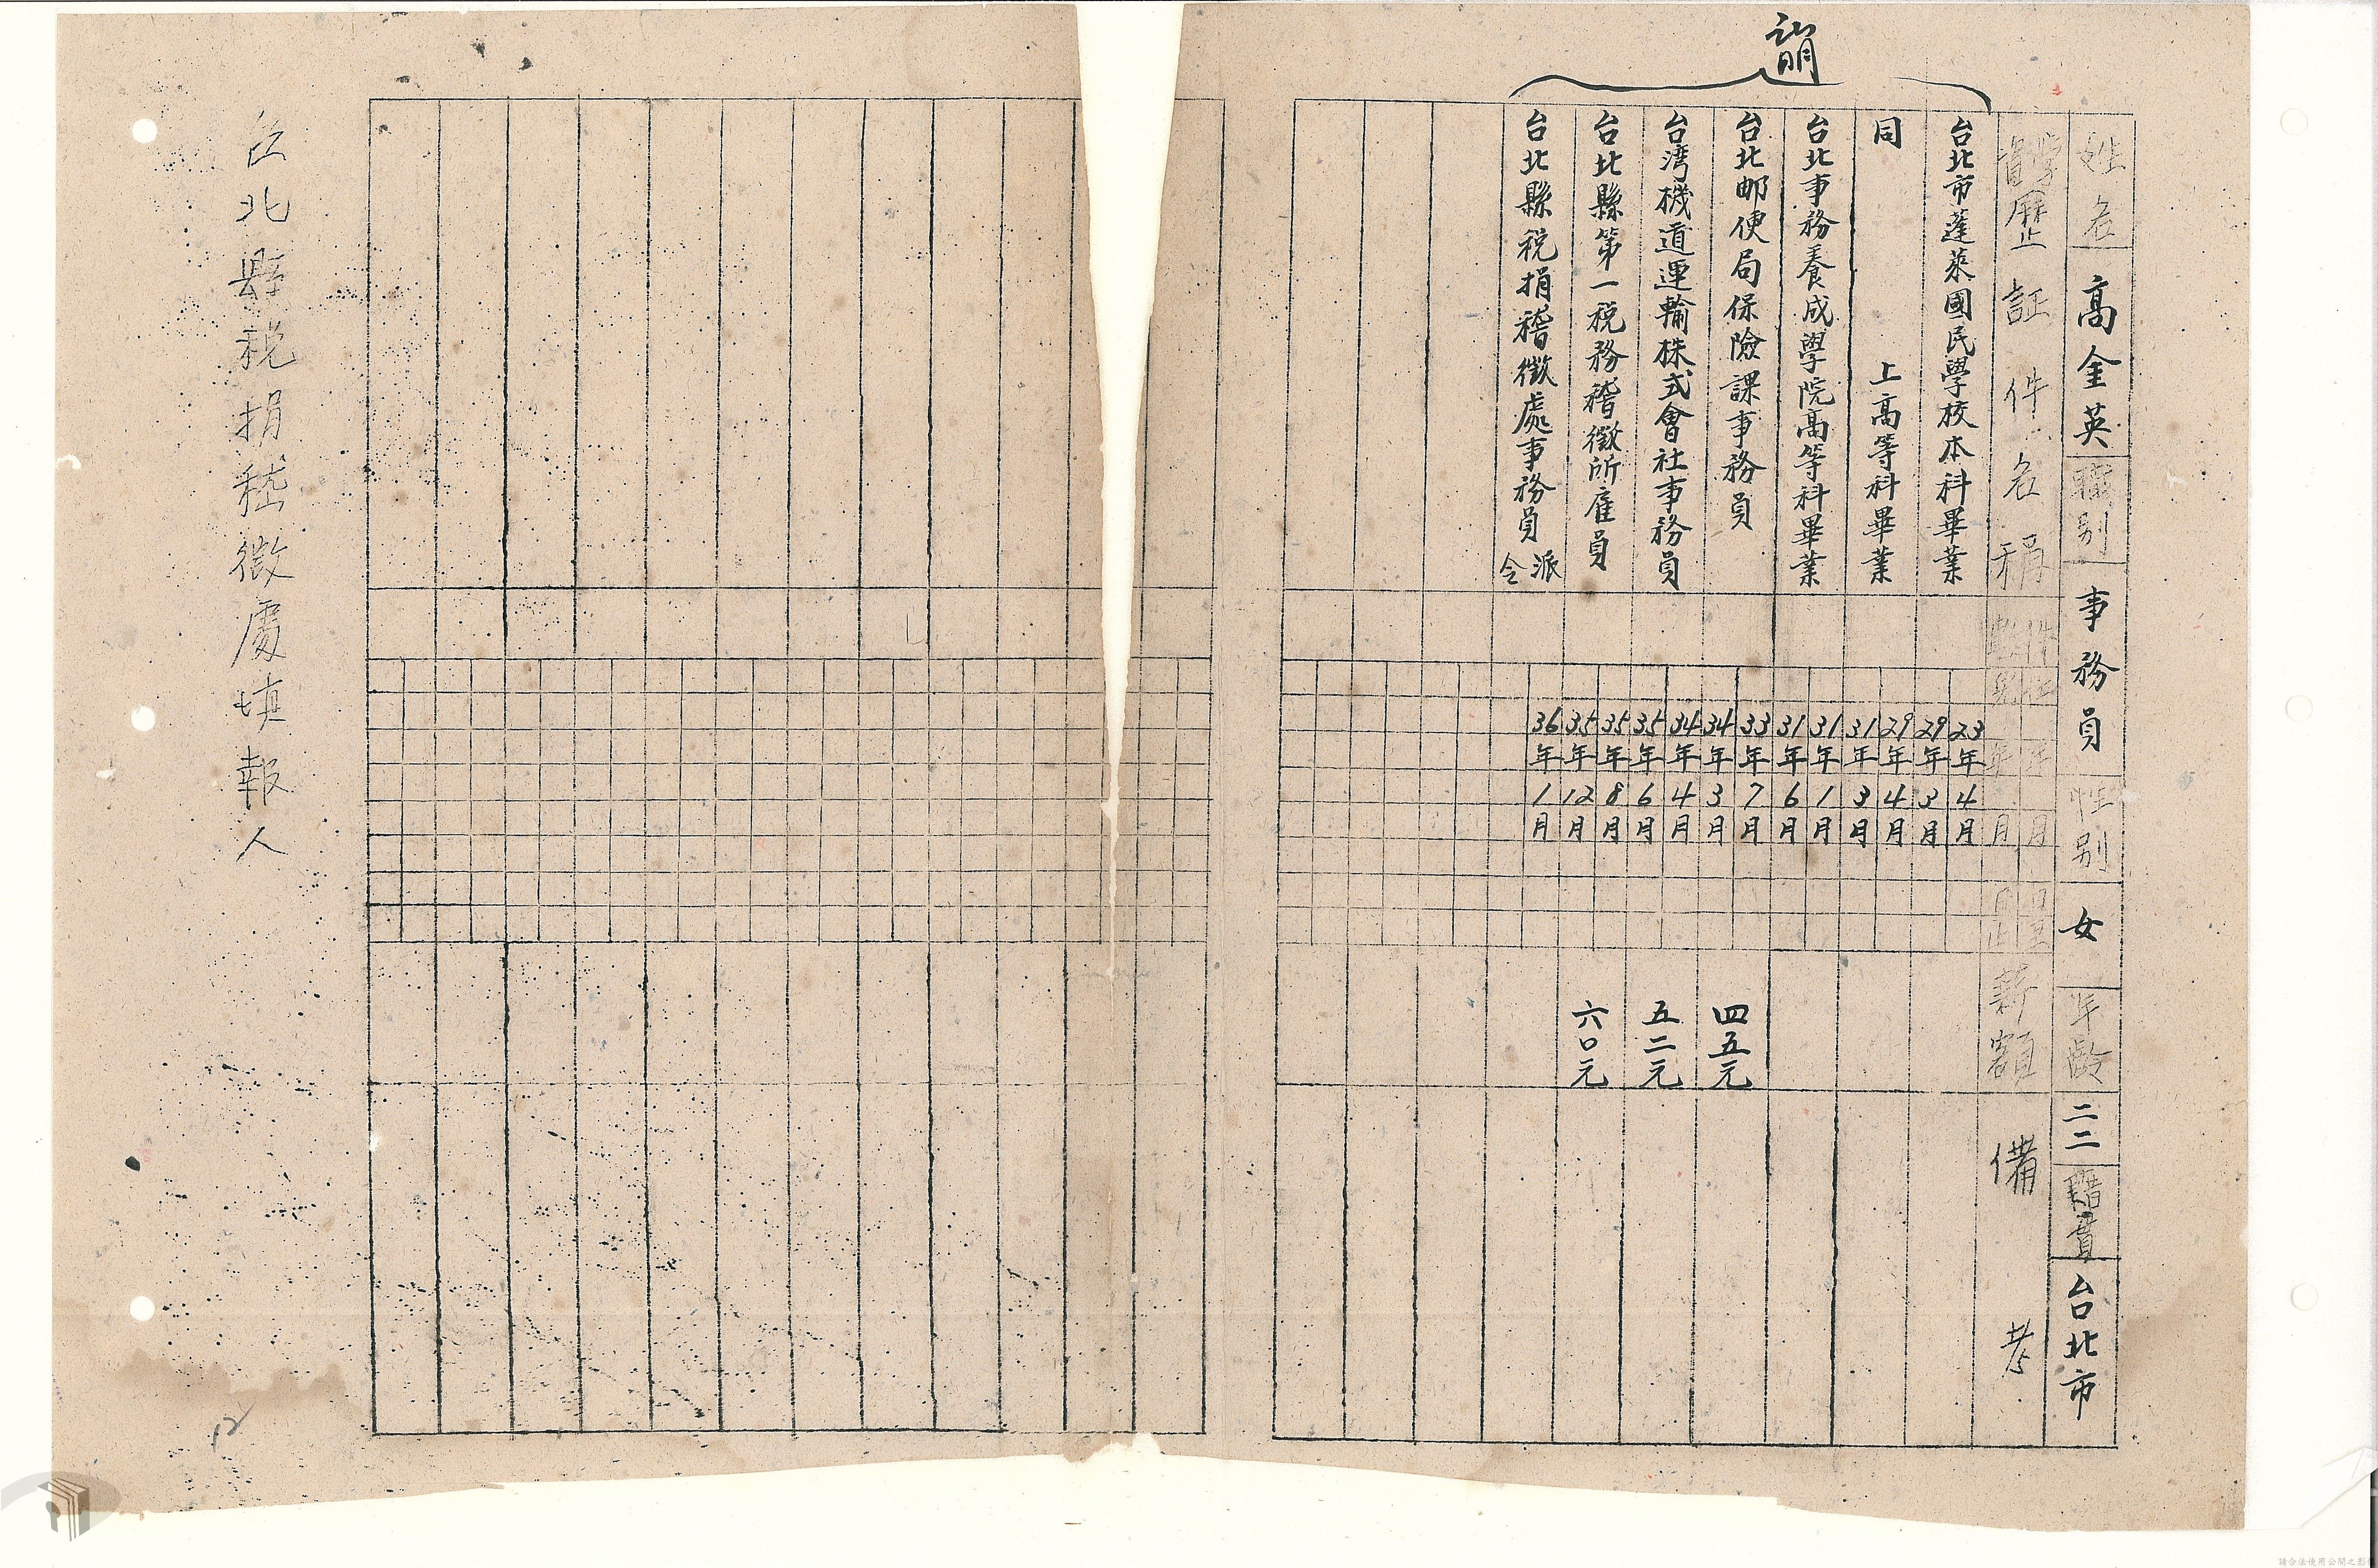 姓名 高金英 職別 事務員 性別 女 年齡 二二 籍貫 台北市
學歷 証件名稱 件 年月 年月 薪額 備考
台北市蓬萊國民學校本科畢業 23年4月 29年3月
同 上高等科畢業 29年4月 31年3月
台北事務養成學院高等科畢業 31年1月 31年6月
台北邮便局保險課事務員 33年7月 34年3月 四五元
台湾機道運輸株式會社事務員 34年4月 35年6月 五二元
台北縣第一税務稽徵所雇員 35年8月 35年12月 六〇元
台北縣税捐稽徵處事務員 派令 36年1月
台北縣税捐稽徵處填報人
12